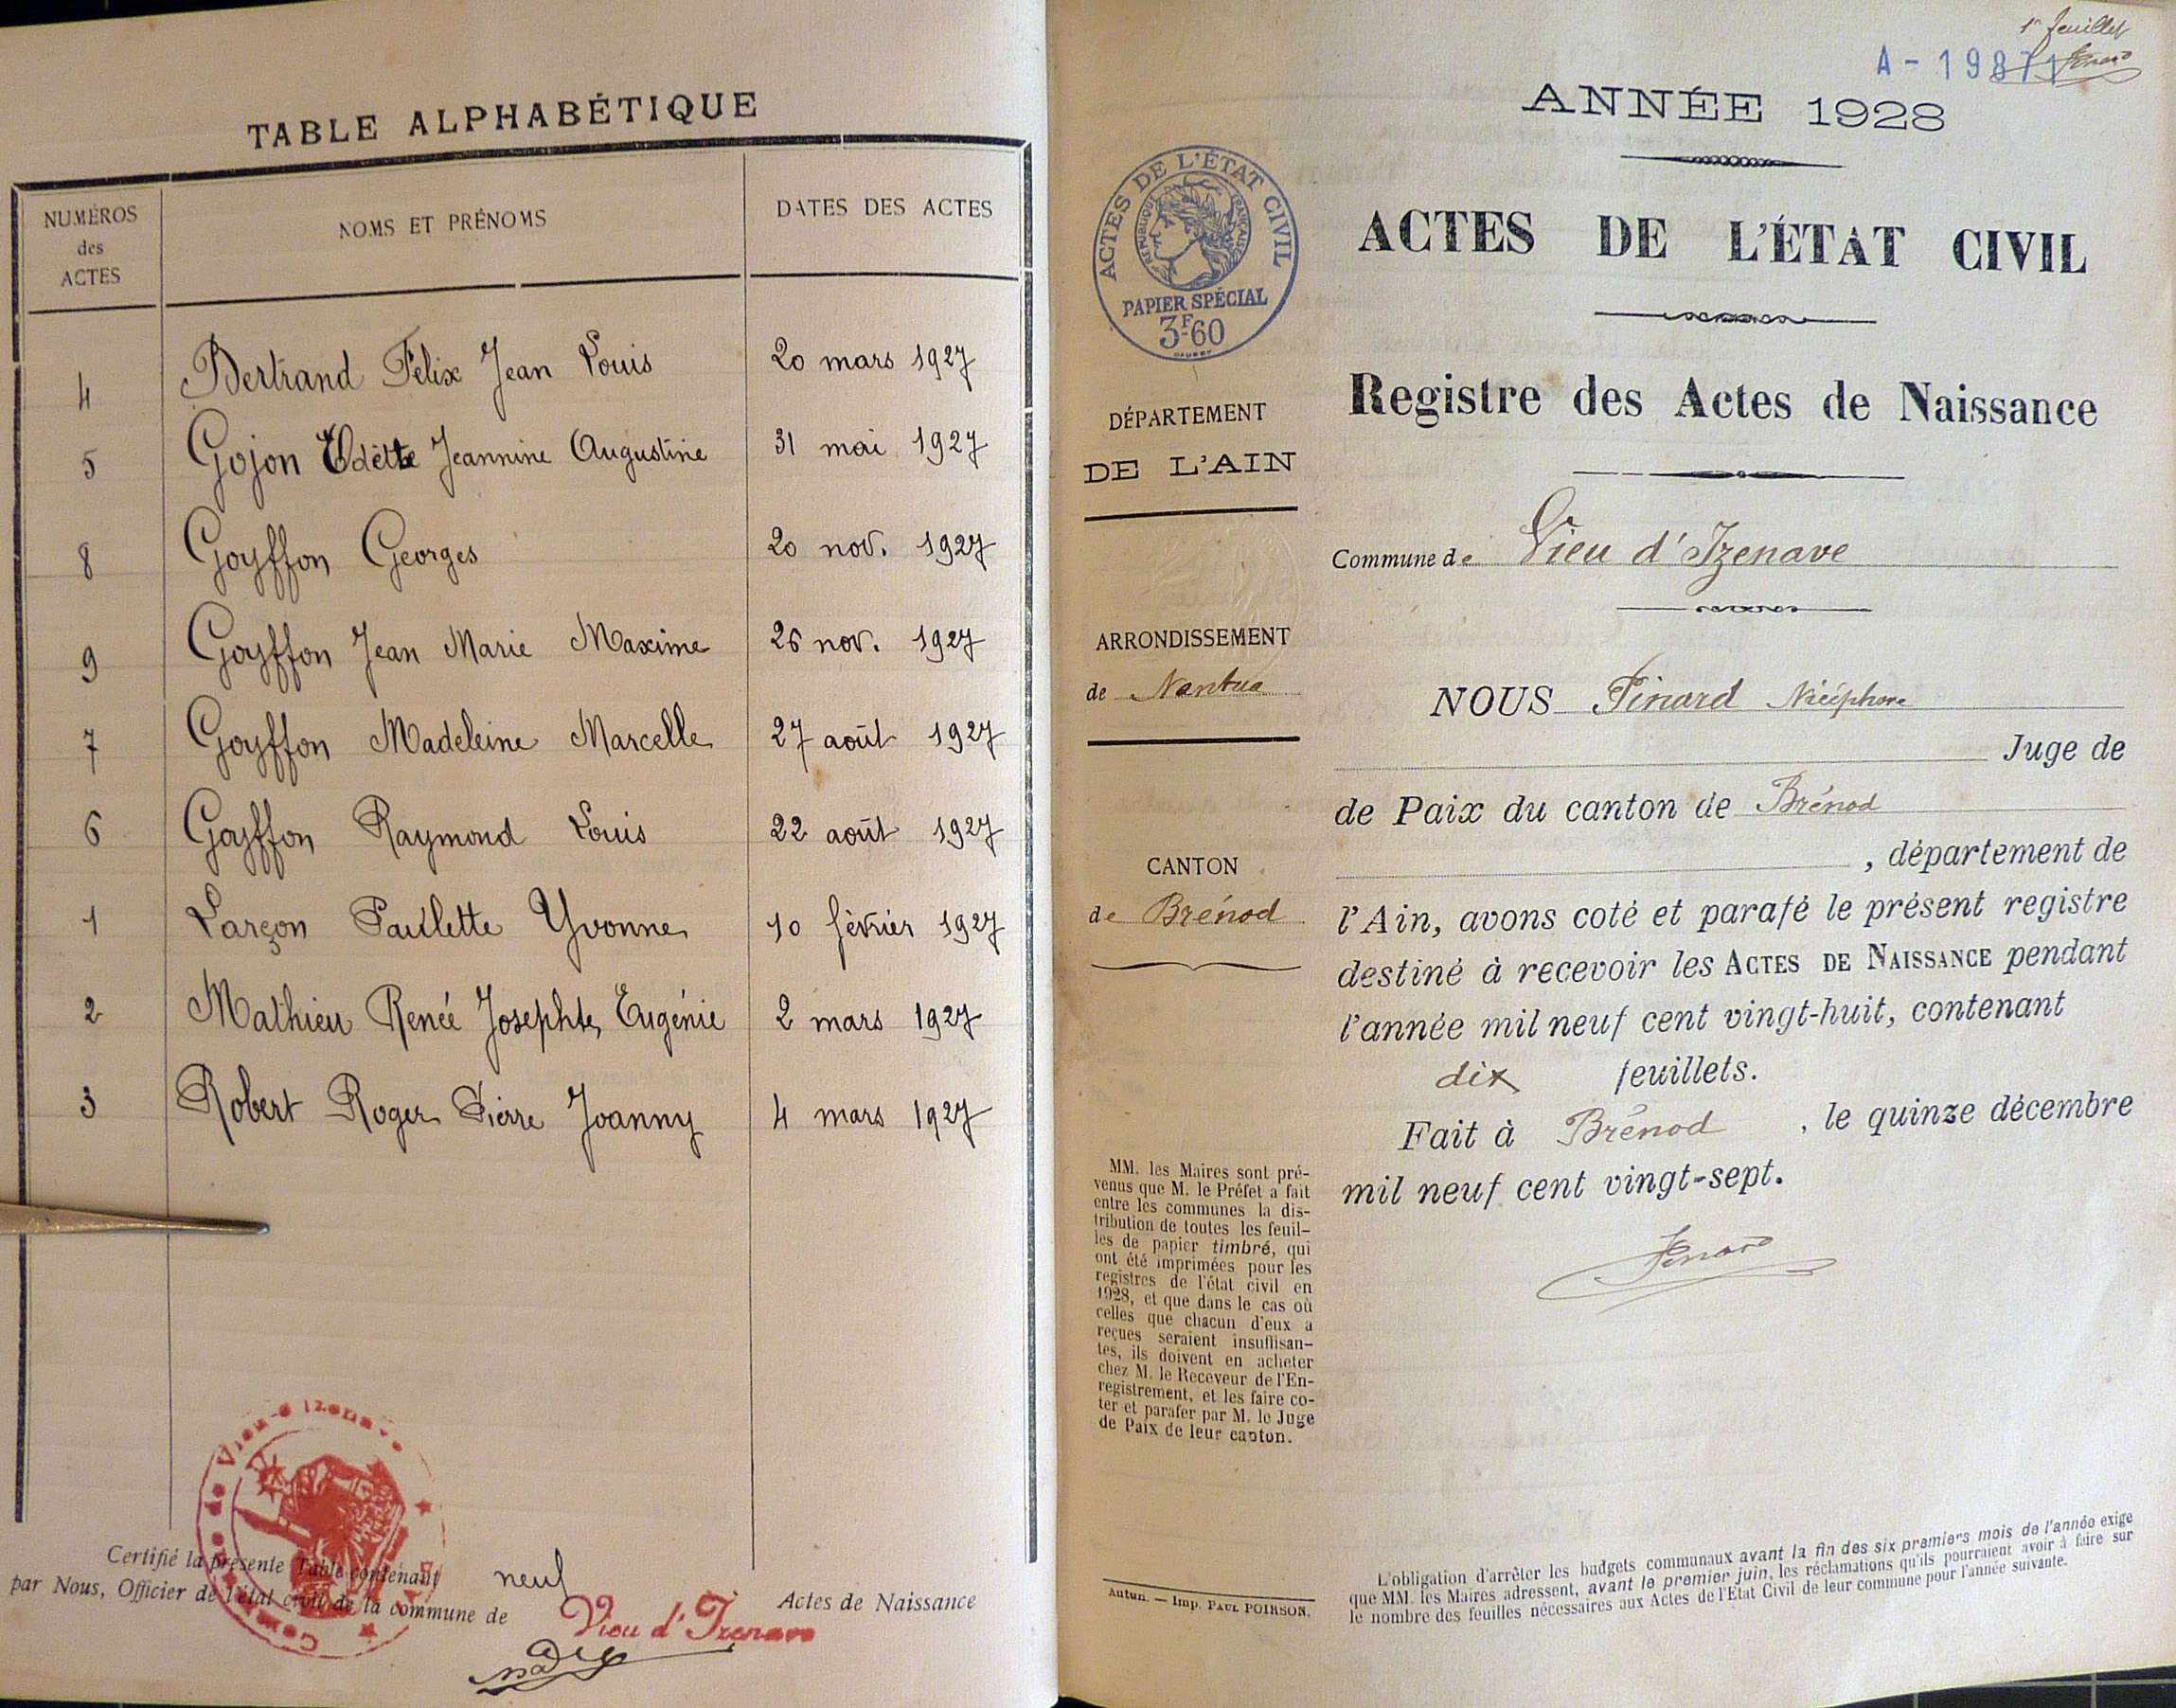 TABLE ALPHABÉTIQUE
NUMÉROS
des
ACTES
NOMS ET PRÉNOMS
DATES DES ACTES
4 Bertrand Félix Jean Louis 20 mars 1927
5 Gojon Odette Jeannine Augustine 31 mai 1927
8 Goyffon Georges 20 nov. 1927
9 Goyffon Jean Marie Maxime 26 nov. 1927
7 Goyffon Madeleine Marcelle 27 août 1927
6 Goyffon Raymond Louis 22 août 1927
1 Larçon Paulette Yvonne 10 février 1927
2 Mathieu Renée Josephte Eugénie 2 mars 1927
3 Robert Roger Pierre Joanny 4 mars 1927
Certifié la présente Table contenant neuf Actes de Naissance
par Nous, Officier de l'état civil de la commune de Vieu d'Izenave
Commune de Vieu-d'Izenave
1er feuillet
A-19871
ANNÉE 1928
ACTES DE L'ÉTAT CIVIL
RÉPUBLIQUE FRANÇAISE
PAPIER SPÉCIAL
3F-60
ACTES DE L'ÉTAT CIVIL
Registre des Actes de Naissance
DÉPARTEMENT
DE L'AIN
Commune de Vieu d'Izenave
ARRONDISSEMENT
de Nantua
CANTON
de Brénod
NOUS Pinard Nicéphore
Juge de
de Paix du canton de Brénod
, département de
l'Ain, avons coté et parafé le présent registre
destiné à recevoir les ACTES DE NAISSANCE pendant
l'année mil neuf cent vingt-huit, contenant
dix feuillets.
Fait à Brénod, le quinze décembre
mil neuf cent vingt-sept.
MM. les Maires sont pré-
venus que M. le Préfet a fait
entre les communes la dis-
tribution de toutes les feuil-
les de papier timbré, qui
ont été imprimées pour les
registres de l'état civil en
1928, et que dans le cas où
celles que chacun d'eux a
reçues seraient insuffisan-
tes, ils doivent en acheter
chez M. le Receveur de l'En-
registrement, et les faire co-
ter et parafer par M. le Juge
de Paix de leur canton.
Autun. — Imp. PAUL POIRSON.
L'obligation d'arrêter les budgets communaux avant la fin des six premiers mois de l'année exige
que MM. les Maires adressent, avant le premier juin, les réclamations qu'ils pourraient avoir à faire sur
le nombre des feuilles nécessaires aux Actes de l'Etat Civil de leur commune pour l'année suivante.